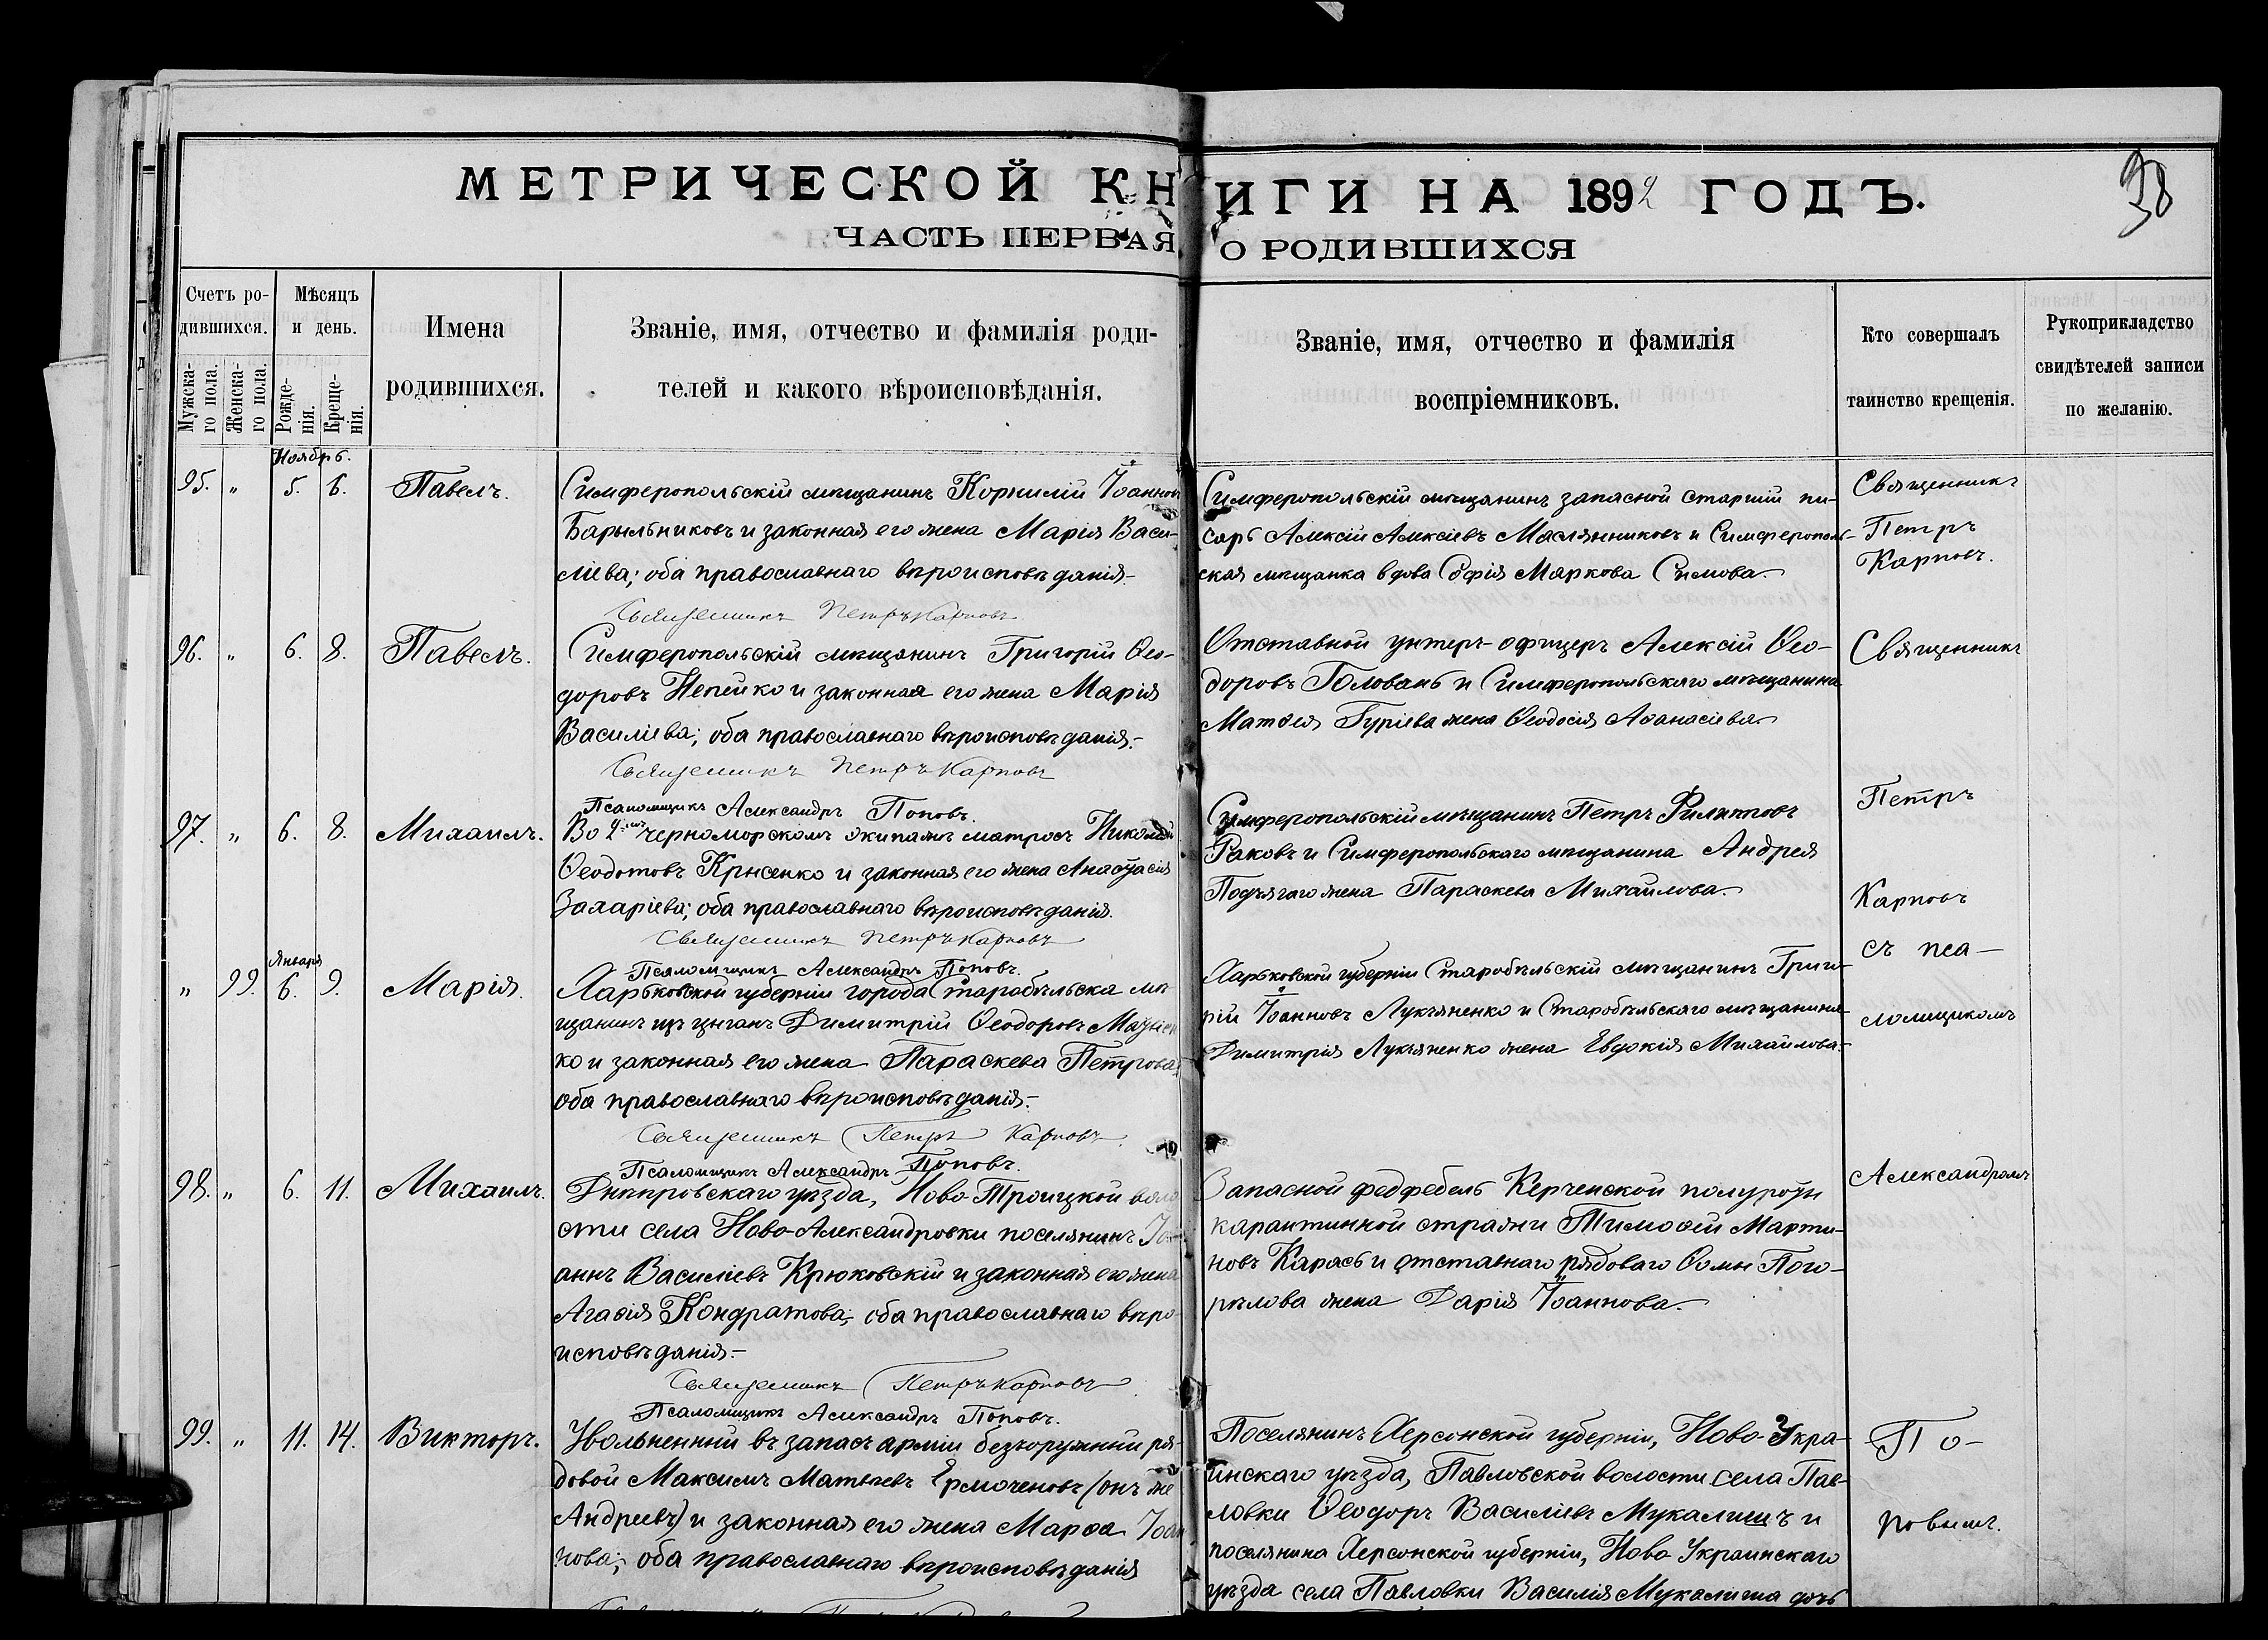 МЕТРИЧЕСКОЙ КНИГИ НА 1892 ГОДЪ.
38
ЧАСТЬ ПЕРВАЯ О РОДИВШИХСЯ
Счетъ ро-
дившихся.
Мужска-
го пола.
Женска-
го пола.
Мѣсяцъ
и день.
Рожде-
нія.
Креще-
нія.
Имена
родившихся.
Званіе, имя, отчество и фамилія роди-
телей и какого вѣроисповѣданія.
Званіе, имя, отчество и фамилія
воспріемниковъ.
Кто совершалъ
таинство крещенія.
Рукоприкладство
свидѣтелей записи
по желанію.
Ноябрь.
95. " 5. 6. Павелъ.
Симферопольскій мѣщанинъ Корнилій Іоаннов
Барыльниковъ и законная его жена Марія Васи-
ліева; оба православнаго вѣроисповѣданія.-
Священникъ Петръ Карповъ
Симферопольскій мѣщанинъ запасной старшій пи-
сарь Алексій Алексіевъ Маслянниковъ и Симферополь-
ская мѣщанка вдова Софія Маркова
Священникъ
Петръ
Карповъ.
96. " 6. 8. Павелъ.
Симферопольскій мѣщанинъ Григорій Ѳео-
доровъ Непейко и законная его жена Марія
Василіева; оба православнаго вѣроисповѣданія.-
Священникъ Петръ Карповъ
Псаломщикъ Александръ Поповъ.
Отставной унтеръ-офицеръ Алексій Ѳео-
доровъ Головань и Симферопольскаго мѣщанина
Матѳея Гуріева жена Ѳеодосія Аѳанасіева
Священникъ
97. " 6. 8. Михаилъ.
Во 2-мъ Черноморскомъ экипажѣ матросъ Николай
Ѳеодотовъ Крысенко и законная его жена Анастасія
Захаріева; оба православнаго вѣроисповѣданія.
Священникъ Петръ Карповъ
Псаломщикъ Александръ Поповъ.
Симферопольскій мѣщанинъ Петръ Филипповъ
Раковъ и Симферопольскаго мѣщанина Андрея
Подъягаго жена Параскева Михаилова.
Петръ
Карповъ
съ пса-
Января
" 99. 6. 9. Марія.
Харьковской губерніи города Старобѣльска мѣ
щанинъ изъ цыганъ Димитрій Ѳеодоровъ
ко и законная его жена Параскева Петрова;
оба православнаго вѣроисповѣданія.-
Священникъ Петръ Карповъ.
Псаломщикъ Александръ Поповъ.
Харьковской губерніи Старобѣльскій мѣщанинъ Григо-
рій Іоанновъ Лукьяненко и Старобѣльскаго мѣщанина
Димитрія Лукьяненко жена Евдокія Михаилова.-
ломщикомъ
98. " 6. 11. Михаилъ.
Днѣпровскаго уѣзда, Ново-Троицкой воло
сти села Ново-Александровки поселянинъ Іо-
аннъ Василіевъ Крюковскій и законная его жена
Агаѳія Кондратова; оба православнаго вѣро-
исповѣданія.-
Священникъ Петръ Карповъ
Псаломщикъ Александръ Поповъ.
Запасной федфебель Керченской полуроты
карантинной стражи Тимоѳій Марти-
новъ Карась и отставнаго рядоваго Ѳомы Пого-
рѣлова жена Дарія Іоаннова.
Александромъ
99. " 11. 14. Викторъ.
Увольненный въ запасъ арміи безоружный ря-
довой Максимъ Матѳіевъ Ермоченовъ (онъ же
Андреевъ) и законная его жена Марѳа Іоан
нова; оба православнаго вѣроисповѣданія
Поселянинъ Херсонской губерніи, Ново-Укра-
инскаго уѣзда, Павловской волости села Пав-
ловки Ѳеодоръ Василіевъ Мукалишъ и
поселянина Херсонской губерніи, Ново Украинскаго
уѣзда села Павловки Василія Мукалиша дочь
По-
повымъ.